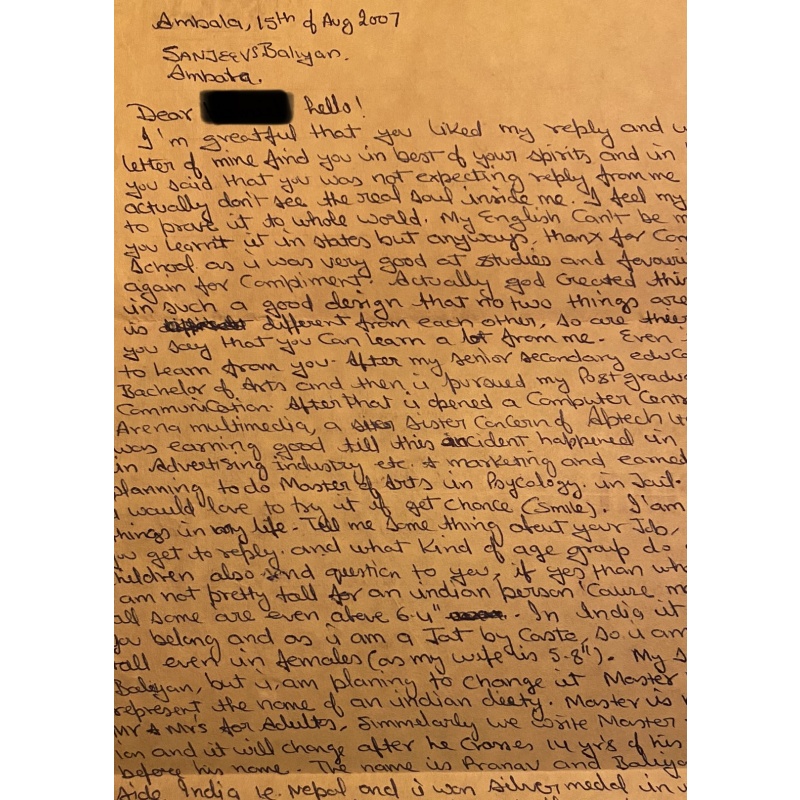 Ambala, 15th of Aug 2007
SANJEEV S Baliyan.
Ambala.
Dear hello!
I'm greatful that you liked my reply and
letter of mine find you in best of your spirits and in
you said that you was not expecting reply from me
actually don't see the real soul inside me. I feel my
to prove it to whole world. My English Can't be m
you learnt it in states but anyways, thanx for Com
School as i was very good at studies and favouri
again for Compliment. Actually god Created this
in such a good design that no two things are
is different from each other, so are
you say that you Can learn a lot from me. Even
to learn from you. After my senior secondary educa
Bachelor of Arts and then i pursued my Post gradua
Communication. After that i opened a Computer Centr
Arena multimedia, a Sister Concern of Aptech Lt
was earning good till this incident happened in
in Advertising industry etc. & marketing and earned
planning to do Master of Arts in Psycology. in Jail.
I would love to try it if get chance (smile). I am
things in my life. Tell me some thing about your Job,
get to reply. and what kind of age group do
hildren also send question to you, if yes than wh
am not pretty tall for an indian person 'Cause m
all some are even above 6-4". In India it
you belong and as i am a Jat by Caste, so i am
all even in females (as my wife is 5-8"). My s
Baliyan, but i am planing to change it Master
represent the name of an indian diety. Master is
Mr & Mrs for Adults, Simmelarly we write Master
ion and it will change after he crosses 14 yrs of his
before his name. The name is Pranav and Baliya
Aide India ie. Nepal and i won silver medal in